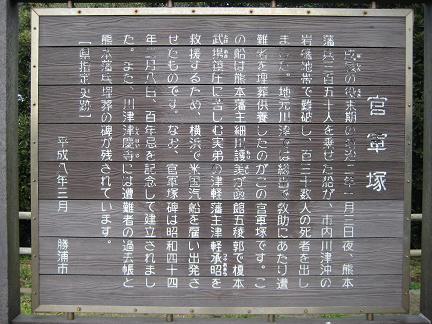 官軍塚
戊辰の役末期の明治二年一月三日夜、熊本
藩兵三百五十人を乗せた船が、市内川津沖の
岩礁地帯で難破し、百二十数人の死者を出し
ました。地元川津では総出で救助にあたり遭
難者を埋葬供養したのがこの官軍塚です。こ
の船は熊本藩主細川護美が函館五稜郭で榎本
武揚鎮圧に苦しむ実弟の津軽藩主津軽承昭を
救援するため、横浜で米国汽船を雇い出発さ
せたものです。なお、官軍塚碑は昭和四十四
年二月八日、百年忌を記念して建立されまし
た。また、川津津慶寺には遭難者の過去帳と
熊本藩士埋葬の碑が残されています。
【県指定史跡】
平成八年三月
勝浦市